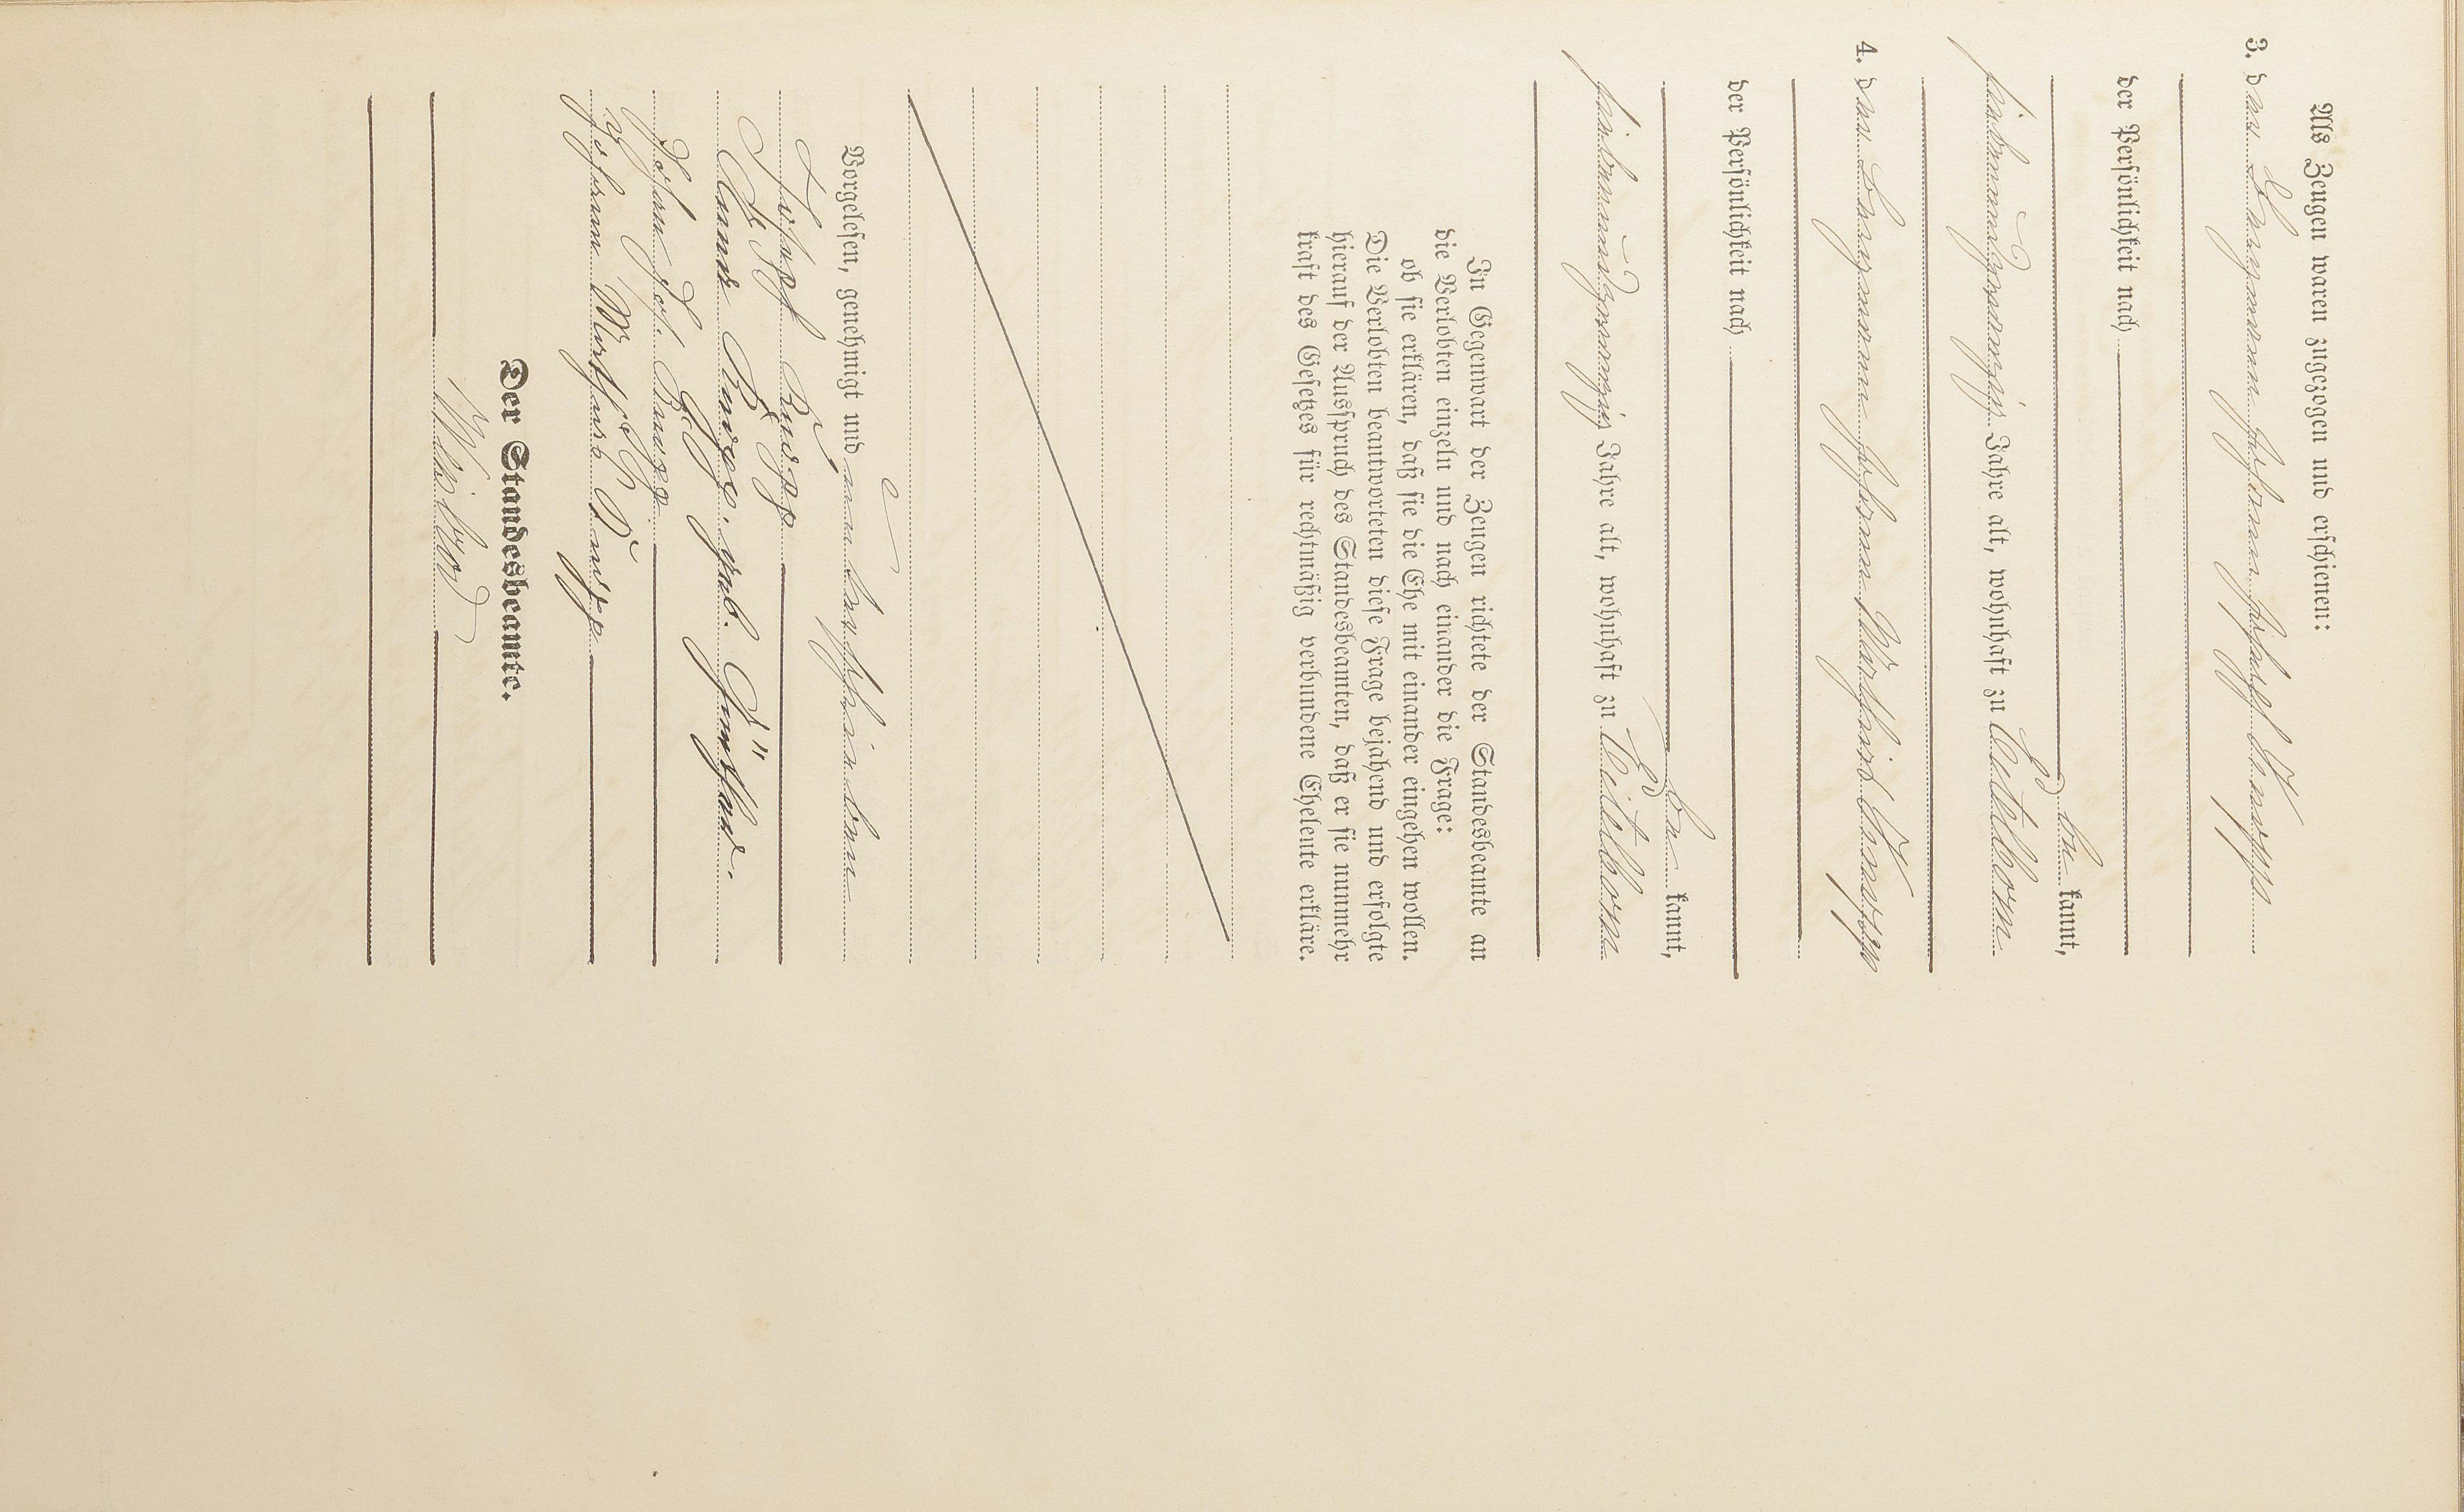 Als Zeugen waren zugezogen und erschienen:
3. der Bergmann Johann Joseph Knopp
der Persönlichkeit nach
be kannt,
siebenundzwanzig Jahre alt, wohnhaft zu Eitelborn
4. der Bergmann Johann Matthias Knopp
der Persönlichkeit nach
be kannt,
siebenundzwanzig Jahre alt, wohnhaft zu Eitelborn
In Gegenwart der Zeugen richtete der Standesbeamte an
die Verlobten einzeln und nach einander die Frage:
ob sie erklären, daß sie die Ehe mit einander eingehen wollen.
Die Verlobten beantworteten diese Frage bejahend und erfolgte
hierauf der Ausspruch des Standesbeamten, daß er sie nunmehr
kraft des Gesetzes für rechtmäßig verbundene Eheleute erkläre.
Vorgelesen, genehmigt und unterschrieben
Joseph
Anna geb.
Johann Jos.
Johann
Der Standesbeamte.